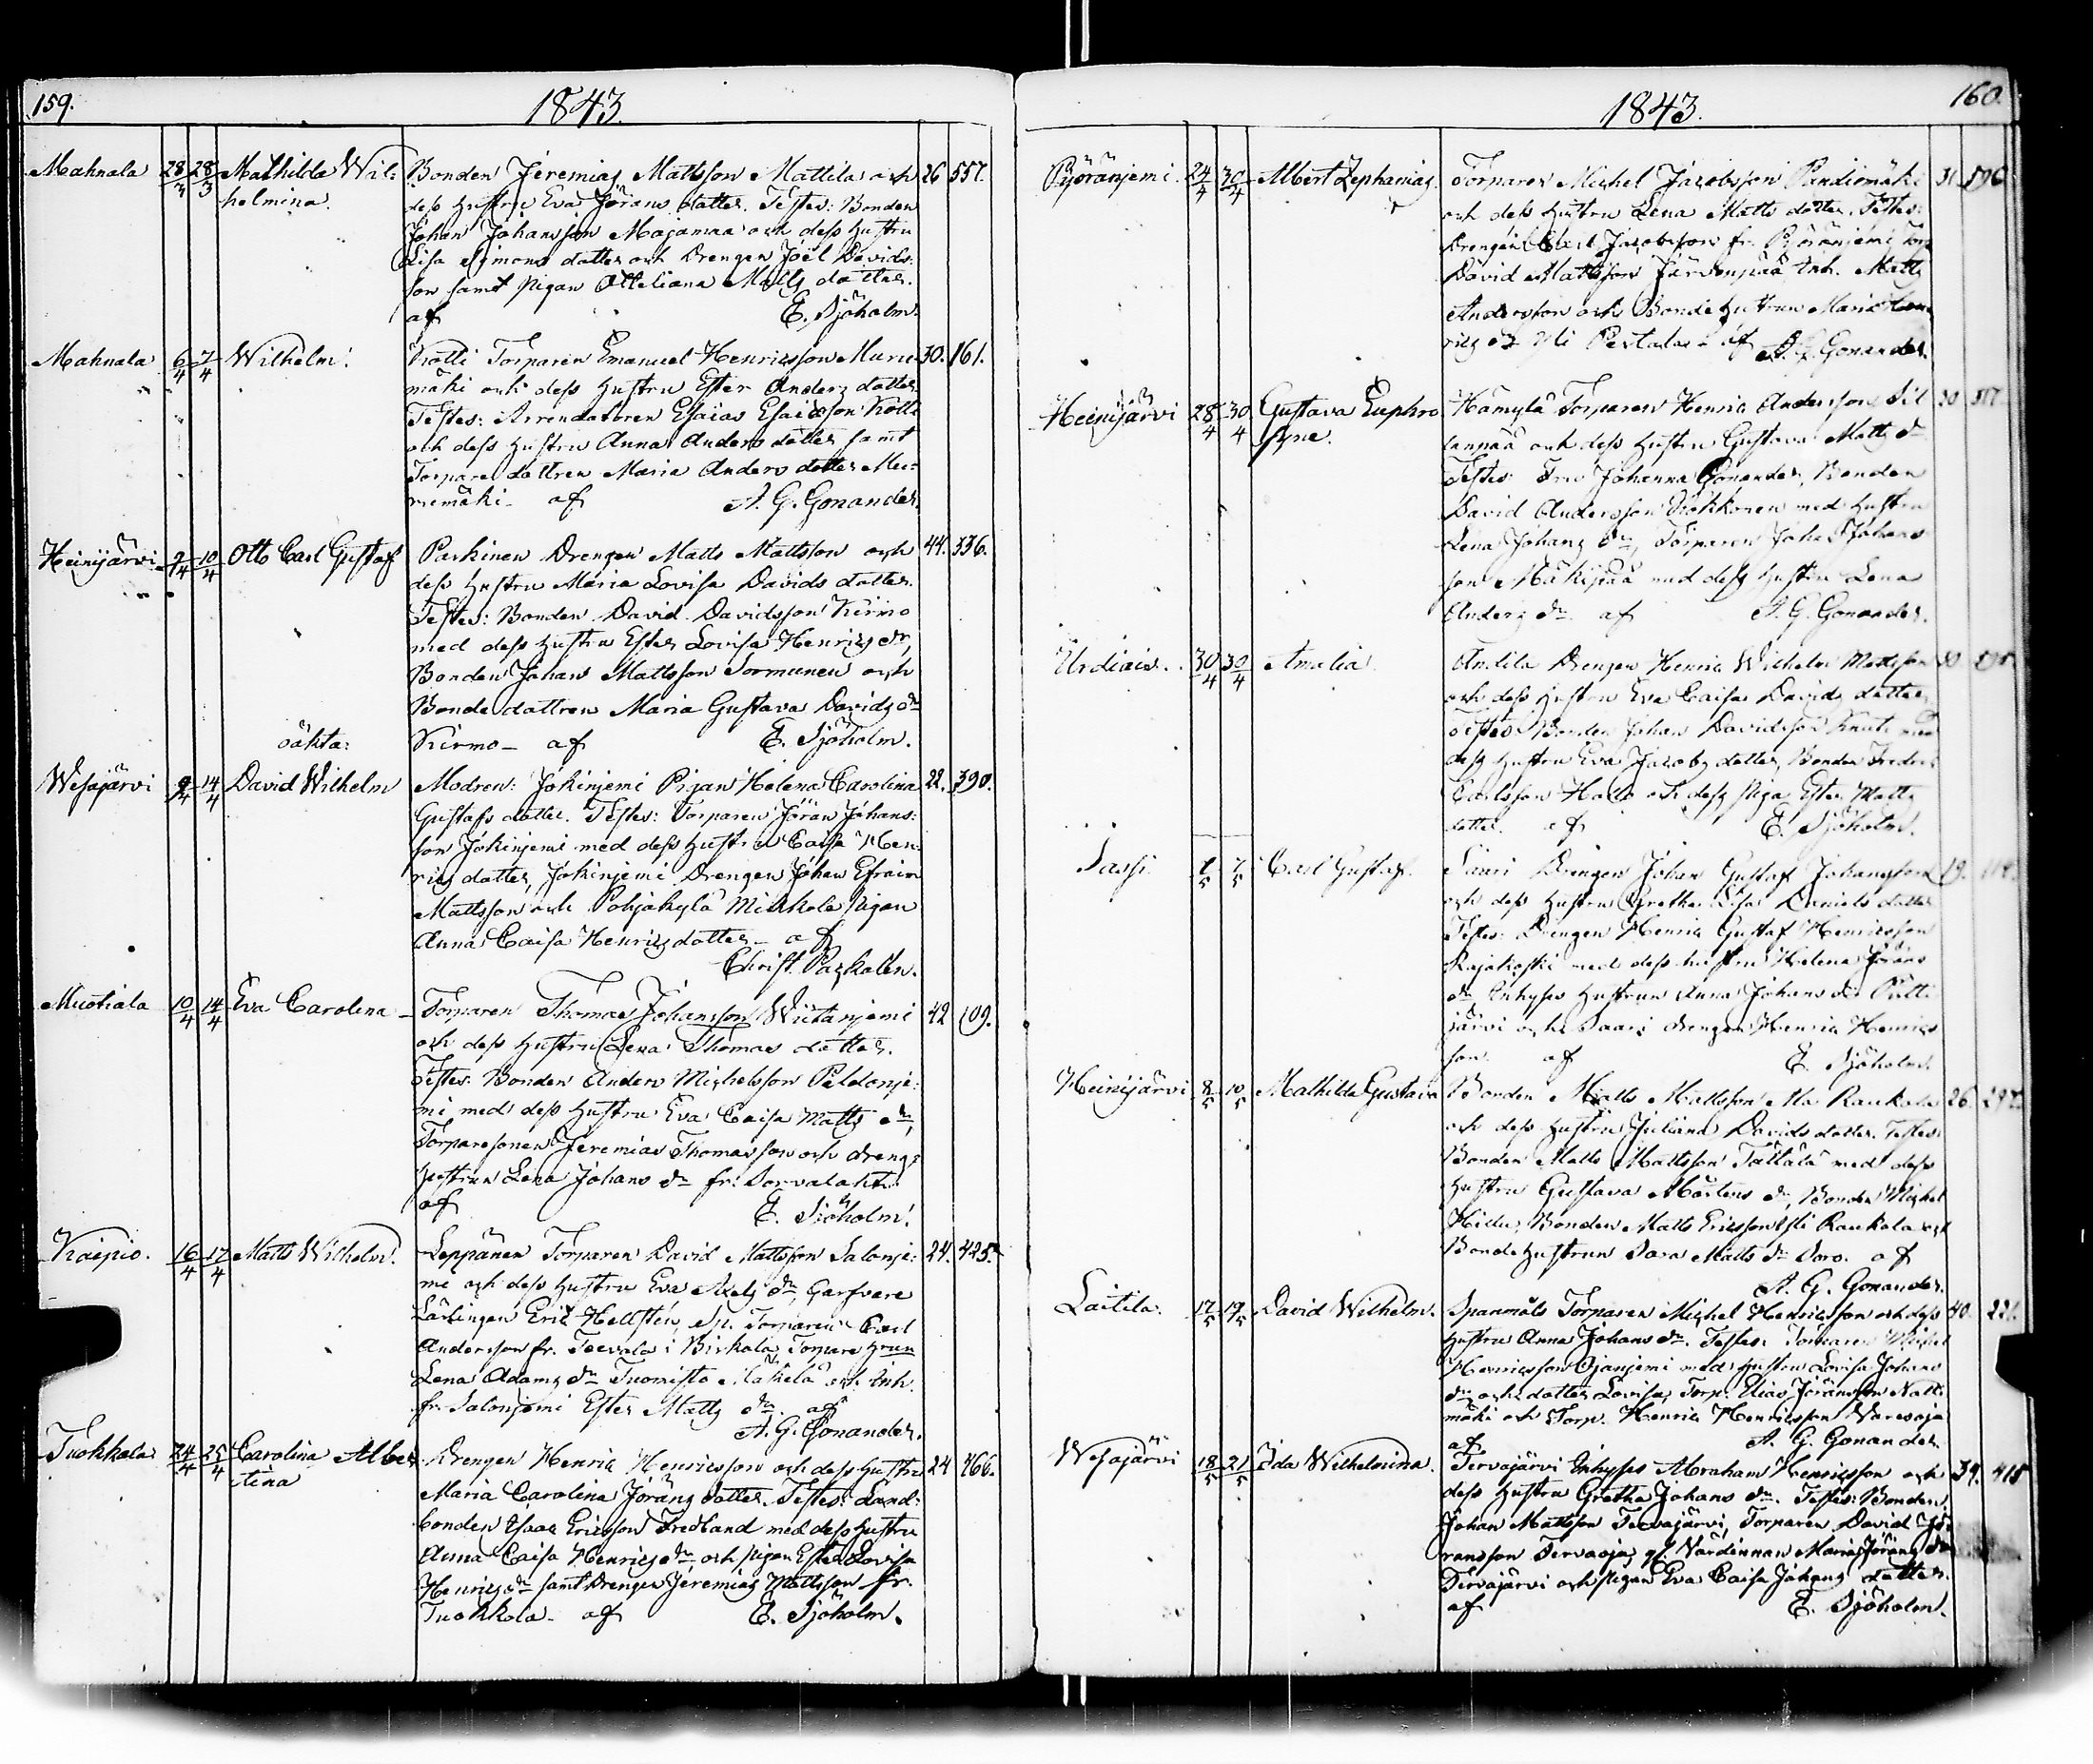 159.
1843.
Mahnala 28/3 28/3 Mathilda Wil= Bonden Jeremias Mattsson Mattila och 26 557.
helmina. dess hustru Eva Jörans dotter. Testes: Bonden
Johan Johansson Majamaa och dess hustru
Lisa Simons dotter och Drengen Joël Davids=
son samt pigan Otteliana Matts dotter.
af E. Sjöholm.
Mahnala 6/4 7/4 Wilhelm. Kötti Torparen Emanuel Henricsson Murie 30. 161.
mäki och dess hustru Ester Anders dotter
Testes: Arrendatoren Esaias Esaiasson Kötti
och dess hustru Anna Anders dotter samt
Torpare dottren Maria Anders dotter Mu=
riemäki – af A. G. Gonander.
Heinijärvi 9/4 10/4 Otto Carl Gustaf Parkinen Drengen Matts Mattsson och 44. 336.
dess hustru Maria Lovisa Davids dotter.
Testes: Bonden David Davidsson Kirmo
med dess hustru Ester Lovisa Henrics dr,
Bonden Johan Mattsson Sormunen och
Bonde dottren Maria Gustava Davids dr
oäkta: Kirmo – af E. Sjöholm.
Wesajärvi 9/4 14/4 David Wilhelm Modren: Jokinjemi Pigan Helena Carolina 22. 390.
Gustafs dotter. Testes: Torparen Jöran Johans=
son Jokinjemi med dess hustru Caisa Hen=
rics dotter, Jokinjemi Drengen Johan Efraim
Mattsson och Pohjakylä Mickola pigan
Anna Caisa Henrics dotter – af
Christ. Pazkalén.
Muotiala 10/4 14/4 Eva Carolina – Torparen Thomas Johansson Wiitanjemi 42 109.
och dess hustru Lena Thomas dotter.
Testes: Bonden Anders Michelsson Peldonje=
mi med dess hustru Eva Caisa Matts dr,
Torparesonen Jeremias Thomasson och dreng=
hustrun Lena Johans dr fr: Sorvalahti
af E. Sjöholm.
Kaipio. 16/4 17/4 Matts Wilhelm. Leppänen Torparen David Mattsson Salonje= 24. 425.
mi och dess hustru Eva Axels dr, Garfvare
Lärlingen Eric Hellstén, Torparen Carl
Andersson fr. Teevala i Birkala, Torpare hrun
Lena Adams dr Tuomisto Mäkelä och Inh.
fr. Salonjemi Ester Matts dr. af
A. G. Gonander.
Tuokkola 24/4 25/4 Carolina Alber Drengen Henric Henricsson och dess hustru 24 466.
tina Maria Carolina Jörans dotter. Testes: Land=
bonden Isaac Ericsson Fredland med dess hustru
Anna Caisa Henrics dr, och pigan Ester Lovisa
Henrics dr samt Drengen Jeremias Mattsson fr.
Tuokkola – af E. Sjöholm.
160.
1843.
Pyöränjemi 24/4 30/4 Albert Zephanias Torparen Michel Jacobsson Pandiomäki 31
och dess hustru Lena Matts dotter. Testes:
Drengen Carl Jacobsson fr. Pyöränjemi,
David Mattsson Järvenpää Inh. Matts
Andersson och Bonde hustrun Maria
af A. G. Gonander.
Heinijärvi 28/4 30/4 Gustava Euphro Hämylä Torparen Henric Andersson Sil 30
syne. lanpää och dess hustru Gustava Matts dr
Testes: Fru Johanna Gonander, Bonden
David Andersson Kokkonen med hustru
Lena Johans dr, Torparen Johan Johans
son Mäkipää med dess hustru Lena
Anders dr. af A. G. Gonander.
Urdiais. 30/4 30/4 Amalia. Anttila Drengen Henric Wilhelm Mattsson 30
och dess hustru Eva Caisa Davids dotter,
Testes Bonden Johan Davidsson Knuti med
dess hustru Eva Jacobs dotter, Bonden Fredric
Carlsson Hallo och dess piga Ester Matts
dotter. af E. Sjöholm.
Sassi. 7/5 Carl Gustaf. Saari Drengen Johan Gustaf Johansson 19.
och dess hustru Gretha Lisa Daniels dotter
Testes: Drengen Henric Gustaf Henricsson
Rajakoski med dess hustru Helena Jörans
dr, Inhyses hustrun Anna Johans dr Pulli
järvi och Saari drengen Henric Henrics
son. af E. Sjöholm.
Heinijärvi 8/5 10/5 Mathilda Gustava Bonden Matts Mattsson Ala Raukola 26. 297.
och dess hustru Juliana Davids dotter. Testes:
Bonden Matts Mattsson Tattala med dess
hustru Gustava Mårtens dr, Bonden Michel
Hillu, Bonden Matts Ericsson Yli Raukola och
Bonde hustrun Sara Matts dr Soro. af
A. G. Gonander.
Laitila. 17/5 19/5 David Wilhelm. Spanmåls Torparen Michel Henricsson och dess 40. 221.
hustru Anna Johans dr. Testes: Torparen Michel
Henricsson Ojanjemi med hustru Lovisa Johans
dr och dotter Lovisa, Torp. Elias Jöransson
mäki och Torp. Henric Henricsson Varesoja
af A. G. Gonander.
Wesajärvi 18/5 21/5 Ida Wilhelmina. Tervajärvi Inhyses Abraham Henricsson och 39. 415
dess hustru Gretha Johans dr. Testes: Bonden
Johan Mattsson Tervajärvi, Torparen David Jö=
ransson Tervaoja, gl. Värdinnan Maria Jörans dr
Tervajärvi och pigan Eva Caisa Johans dotter.
af E. Sjöholm.